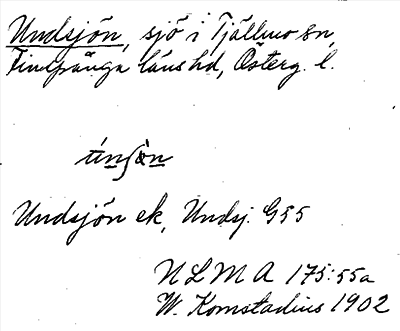 Undsjön, sjö i Tjällmo sn,
Finspånga läns hd, Österg. l.
Undsjön ek, Undsj. G55
NLMA 175:55a
W. Komstadius 1902